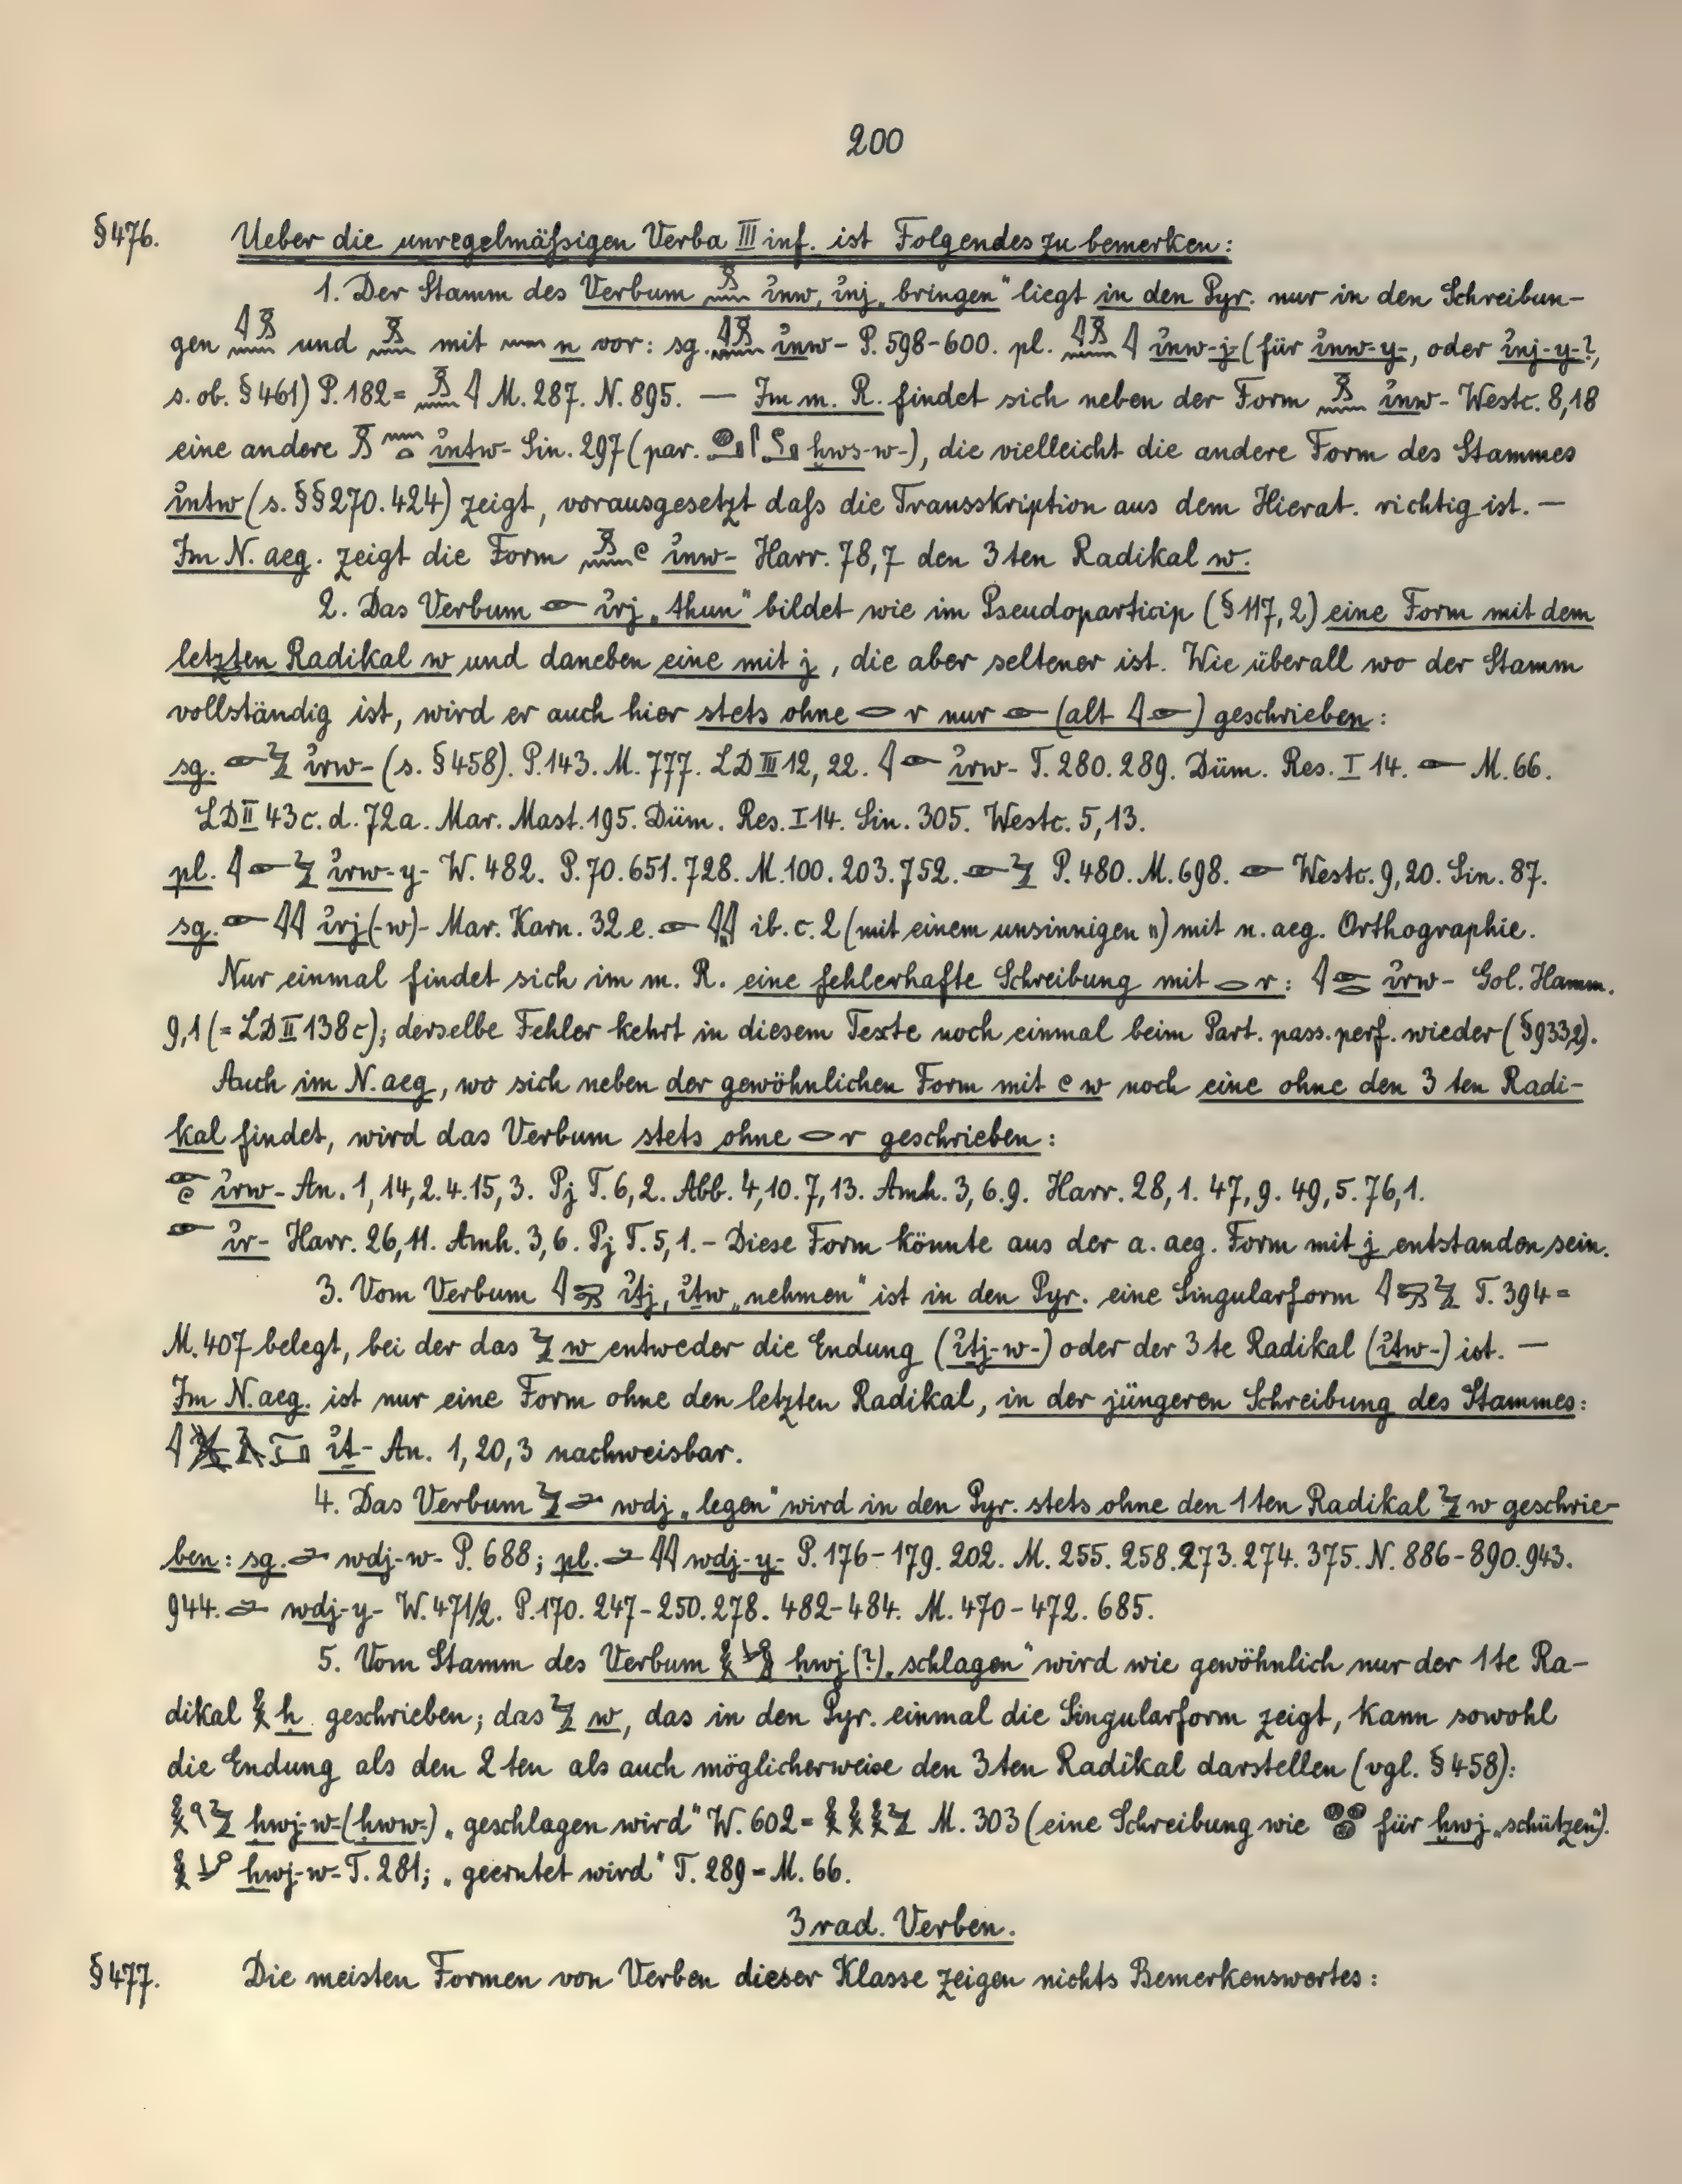 200
§476. Ueber die unregelmäßigen Verba III inf. ist Folgendes zu bemerken:
1. Der Stamm des Verbum 𓏎𓈖 ꞽnw, ꞽnj „bringen“ liegt in den Pyr. nur in den Schreibun-
gen 𓇋𓏎𓈖 und 𓏎𓈖 mit 𓈖 n vor: sg. 𓇋𓏎𓈖 ꞽnw- P. 598-600. pl. 𓇋𓏎𓈖𓇋 ꞽnw-j- (für ꞽnw-y-, oder ꞽnj-y-?,
s. ob. §461) P. 182 = 𓏎𓈖𓇋 M. 287. N. 895. — Im m. R. findet sich neben der Form 𓏎𓈖 ꞽnw- Westc. 8,18
eine andere 𓏎𓈖𓏏 ꞽntw- Sin. 297 (par. ḫws-w-), die vielleicht die andere Form des Stammes
ꞽntw (s. §§270. 424) zeigt, vorausgesetzt daß die Transskription aus dem Hierat. richtig ist. —
Im N. aeg. zeigt die Form 𓏎𓈖𓏲 ꞽnw- Harr. 78,7 den 3ten Radikal w.
2. Das Verbum 𓁹 ꞽrj „thun“ bildet wie im Pseudoparticip (§117,2) eine Form mit dem
letzten Radikal w und daneben eine mit j, die aber seltener ist. Wie überall wo der Stamm
vollständig ist, wird er auch hier stets ohne 𓂋 r nur 𓁹 (alt 𓇋𓁹) geschrieben:
sg. 𓁹𓅱 ꞽrw- (s. §458). P. 143. M. 777. LD III 12, 22. 𓇋𓁹 ꞽrw- T. 280. 289. Düm. Res. I 14. 𓁹 M. 66.
LD II 43 c. d. 72a. Mar. Mast. 195. Düm. Res. I 14. Sin. 305. Westc. 5,13.
pl. 𓇋𓁹𓅱 ꞽrw-y- W. 482. P. 70. 651. 728. M. 100. 203. 752. 𓁹𓅱 P. 480. M. 698. 𓁹 Westc. 9,20. Sin. 87.
sg. 𓁹𓇋𓇋 ꞽrj(-w)- Mar. Karn. 32 e. 𓁹𓇋𓇋 ib. c. 2 (mit einem unsinnigen 𓏭) mit n. aeg. Orthographie.
Nur einmal findet sich im m. R. eine fehlerhafte Schreibung mit 𓂋 r: 𓇋𓁹𓂋 ꞽrw- Gol. Hamm.
9,1 (= LD II 138 c); derselbe Fehler kehrt in diesem Texte noch einmal beim Part. pass. perf. wieder (§933,2).
Auch im N. aeg., wo sich neben der gewöhnlichen Form mit 𓏲 w noch eine ohne den 3ten Radi-
kal findet, wird das Verbum stets ohne 𓂋 r geschrieben:
𓁹𓏲 ꞽrw- An. 1, 14,2. 4. 15,3. Pj T. 6,2. Abb. 4,10. 7,13. Amh. 3, 6. 9. Harr. 28,1. 47,9. 49,5. 76,1.
𓁹 ꞽr- Harr. 26,11. Amh. 3,6. Pj T. 5,1. - Diese Form könnte aus der a. aeg. Form mit j entstanden sein.
3. Vom Verbum 𓇋𓍿 ꞽṯj, ꞽṯw „nehmen“ ist in den Pyr. eine Singularform 𓇋𓍿𓅱 T. 394 =
M. 407 belegt, bei der das 𓅱 w entweder die Endung (ꞽṯj-w-) oder der 3te Radikal (ꞽṯw-) ist. —
Im N. aeg. ist nur eine Form ohne den letzten Radikal, in der jüngeren Schreibung des Stammes:
ꞽṯ- An. 1, 20, 3 nachweisbar.
4. Das Verbum 𓅱𓂧 wdj „legen“ wird in den Pyr. stets ohne den 1ten Radikal 𓅱 w geschrie-
ben: sg. 𓂧 wdj-w- P. 688; pl. 𓂧𓇋𓇋 wdj-y- P. 176-179. 202. M. 255. 258. 273. 274. 375. N. 886-890. 943.
944. 𓂧 wdj-y- W. 471/2. P. 170. 247-250. 278. 482-484. M. 470-472. 685.
5. Vom Stamm des Verbum ḥwj (?) „schlagen“ wird wie gewöhnlich nur der 1te Ra-
dikal 𓎛 ḥ geschrieben; das 𓅱 w, das in den Pyr. einmal die Singularform zeigt, kann sowohl
die Endung als den 2ten als auch möglicherweise den 3ten Radikal darstellen (vgl. §458):
ḥwj-w- (ḥww-) „geschlagen wird“ W. 602 = 𓎛𓎛𓎛𓅱 M. 303 (eine Schreibung wie 𓐍𓐍𓐍 für ḫwj „schützen“).
ḥwj-w- T. 281; „geerntet wird“ T. 289 = M. 66.
3rad. Verben.
§477. Die meisten Formen von Verben dieser Klasse zeigen nichts Bemerkenswertes: